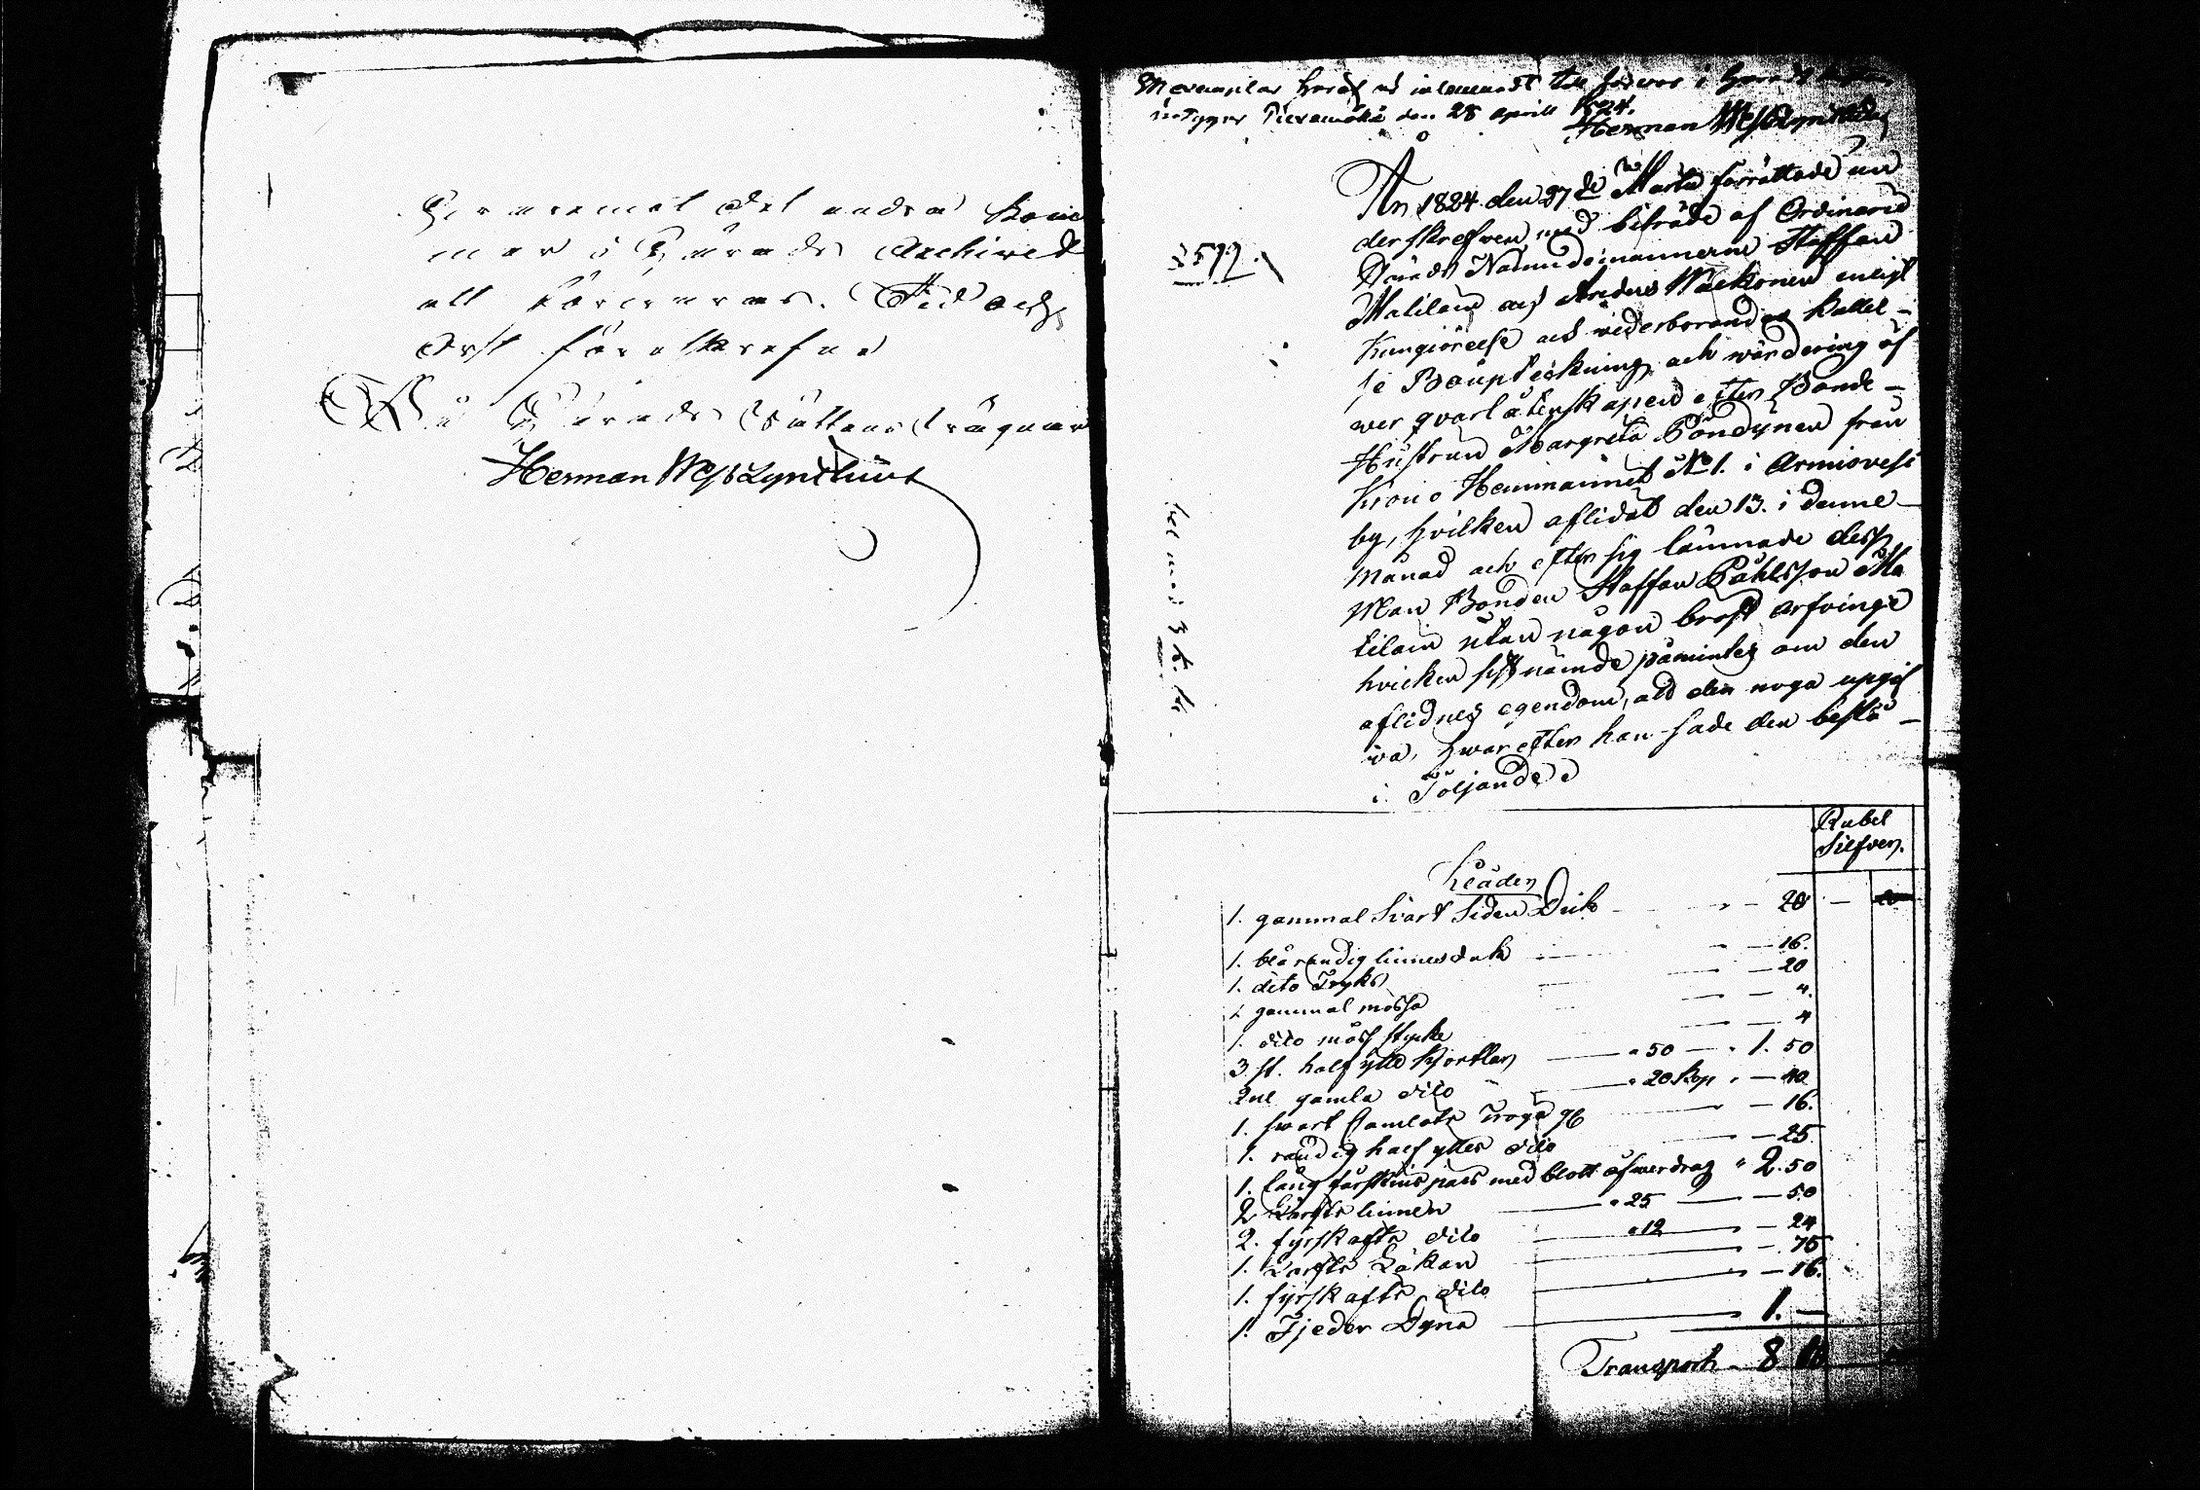 det andra kom
mer i Härads Archivet
att förvaras. Tid och
Ort förutskrefne
På Härads Rättens vägnar
Herman Wess
exemplar häraf är inlemnadt till
intygar den 28 April 1824.
Herman
År 1824 den 27de Martii förrättade un
derskrefven med biträde af Ordinarie
Härads Nämndemännerne Staffan
Matilain och Anders enligt
Kungiörelse och vederborandes kallel-
se Bouptekning och värdering öf
wer qvarlåtenskapen efter Bonde-
Hustrun Margreta Pöndynen från
Krono Hemmanet No 1. i Armiovesi
by, hvilken aflidit den 13. i denne
Månad och efter sig lämnade dess
Man Bonden Staffan Påhlsson Ma
tilain utan någon bröst arfvinge
hvilken sistnämde påmintes om den
aflidnes egendom, att den noga uppgif
va, hwarefter han sade den bestå-
i Följande
Rubel
Silfver.
Kläder
1. gammal Svart Siden Duk 20
1. blårandig linnes duk 16.
1. dito Tryks 20
1 gammal mössa 4.
1. dito möss stycke 4
3 st. half ylle Kjortlar 50 1. 50
2ne gamla dito 20 Kop 40
1. swart Camlots tröga 16.
1. randig half ylles dito 25
1. lång fårskins päls med blott öfwerdrag 2. 50
2 Lärfts linnen 25 50
2. fyrskafts dito 12 24
1. Lärfts Lakan 75
1. fyrskafts dito 16.
1. Fjeder Dyna 1.
Transport 8